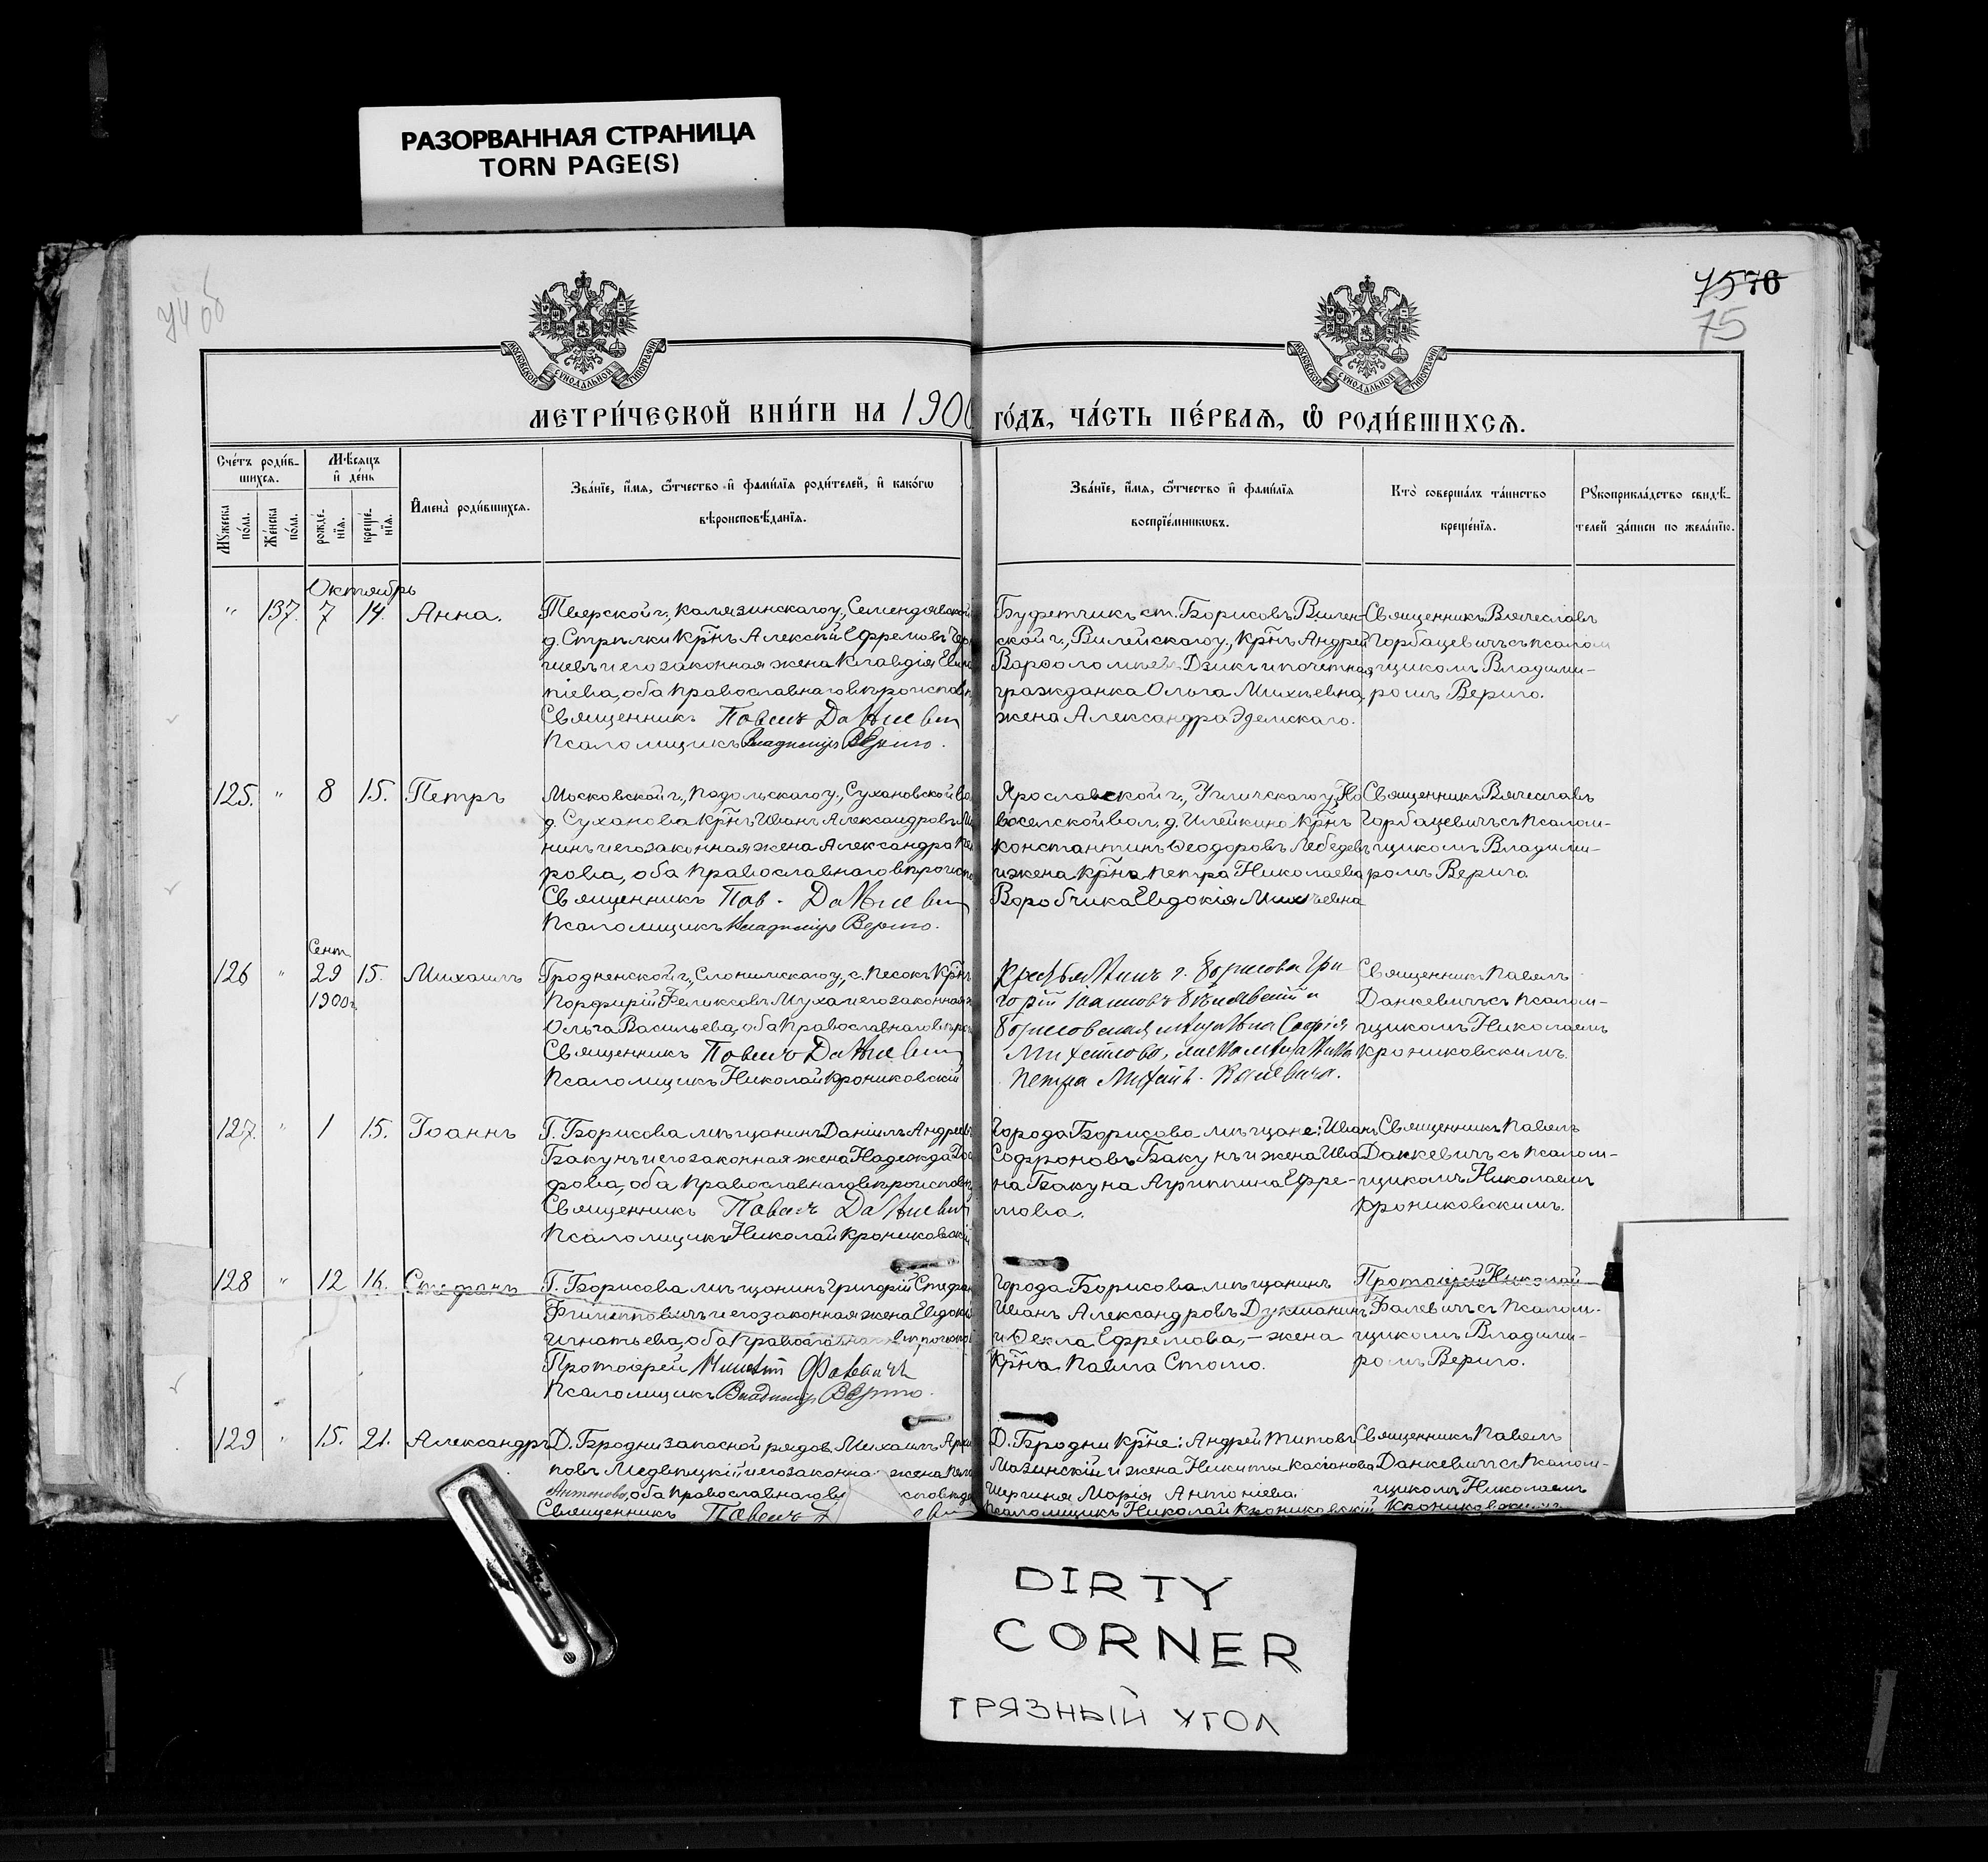 РАЗОРВАННАЯ СТРАНИЦА
TORN PAGE(S)
74 об
75 76
75
МОСКОВСКОЙ СѴНОДАЛЬНОЙ ТИПОГРАФІИ
МОСКОВСКОЙ СѴНОДАЛЬНОЙ ТИПОГРАФІИ
МЕТРИ́ЧЕСКОЙ КНИ́ГИ НА 1900 ГО́ДЪ, ЧА́СТЬ ПЕ́РВАѦ, Ѡ҆ РОДИ́ВШИХСѦ.
Сче́тъ роди́в-
шихсѧ.
Мꙋжеска по́ла.
Же́нска по́ла.
Мѣсѧцъ
и҆ де́нь
рожде́-нїѧ.
креще́-нїѧ.
И҆мена̀ роди́вшихсѧ.
Зва́нїе, и҆́мѧ, ѻ҆́тчество и҆ фами́лїѧ роди́телей, и҆ како́гѡ
вѣроисповѣ́данїѧ.
Зва́нїе, и҆́мѧ, ѻ҆́тчество и҆ фами́лїѧ
воспрїе́мникѡвъ.
Кто̀ соверша́лъ та́инство
креще́нїѧ.
Рꙋкоприкла́дство свидѣ́-
телей за́писи по жела́нїю.
Октябрь
" 137. 7 14. Анна.
Тверской г., Калязинскаго у., Семендяевской
д. Стрѣлки Крн҃ъ Алексѣй Ефремовъ
и его законная жена Клавдія
пѣева, оба православнаго вѣроисповѣ
Священникъ Павелъ Данкевич
Псаломщикъ Владимiръ Верига.
Буфетчикъ ст. Борисовъ Вилен-
ской г., Вилейскаго у., Крн҃ъ Андрей
Варфоломѣевъ Дзикъ и почетная
гражданка Ольга Михѣевна,
жена Александра Эдемскаго.
Священникъ Вячеславъ
Горбацевичъ съ псалом
щикомъ Владими-
ромъ Вериго.
125. " 8 15. Петръ
Московской г., Подольскаго у., Сухановской во
д. Суханова Крн҃ъ Иванъ Александровъ
нинъ и его законная жена Александра Пе
рова, оба православнаго вѣроиспо
Священникъ Пав. Данкевич
Псаломщикъ Владимiръ Верига.
Ярославской г., Угличскаго у., Но
восельской вол. д. Илейкино Крн҃ъ
Константинъ Ѳеодоровъ Лебедевъ
и жена Крн҃а Петра Николаева
Воробчика Евдокія Михѣевна
Священникъ Вячеславъ
Горбацевичъ съ псалом-
щикомъ Владими-
ромъ Верига
Сент
126 " 29 15. Михаилъ
1900 г.
Гродненской г., Слонимскаго у., с. Песокъ Крн҃ъ
Порфирій Феликсовъ Муха и его законная ж
Ольга Васильева, оба православнаго вѣро
Священникъ Павелъ Данкевич
Псаломщикъ Николай Крониковскій
Крестьянинъ г. Борисова Гри-
горій Іоанновъ и
Борисовская мѣщанка Софія
Михайлова, жена мѣщанина
Петра Михайл.
Священникъ Павелъ
Данкевичъ съ псалом-
щикомъ Николаемъ
Крониковскимъ.
127. " 1 15. Іоаннъ
Г. Борисова мѣщанинъ Даніилъ Андреевъ
Бакунъ и его законная жена Надежда
фова, оба православнаго вѣроисповѣ
Священникъ Павелъ Данкевич
Псаломщикъ Николай Крониковскій
Города Борисова мѣщане: Иванъ
Софроновъ Бакунъ и жена Ива
на Бакуна Агриппина Ефре-
мова.
Священникъ Павелъ
Данкевичъ съ псалом-
щикомъ Николаемъ
Крониковскимъ.
128 " 12 16. Стефанъ
Г. Борисова мѣщанинъ Григорій Стефан
Филипповичъ и его законная жена Евдокія
Игнатьева, оба православнаго вѣроиспов
Протоіерей Николай Фалевичъ
Псаломщикъ Владимiръ Верига.
Города Борисова мѣщанинъ
Иванъ Александровъ Дукшанинъ
и Ѳекла Ефремова, – жена
Крн҃а Павла Стомо.
Протоіерей Николай
Фалевичъ съ псалом-
щикомъ Владими-
ромъ Вериго.
129 " 15. 21. Александръ
Д. Бродни запасной рядов. Михаилъ
повъ Медвѣцкій и его законна жена Пел
Антонова, оба православнаго вѣ сповѣда
Священникъ Павелъ Д
Д. Бродни Крн҃е: Андрей Титовъ
Мазинскій и жена Никиты
Марія Антоніева.
Псаломщикъ Николай Крониковскій
Священникъ Павелъ
Данкевичъ съ псалом-
щикомъ Николаемъ
Крониковскимъ
DIRTY
CORNER
ГРЯЗНЫЙ УГОЛ